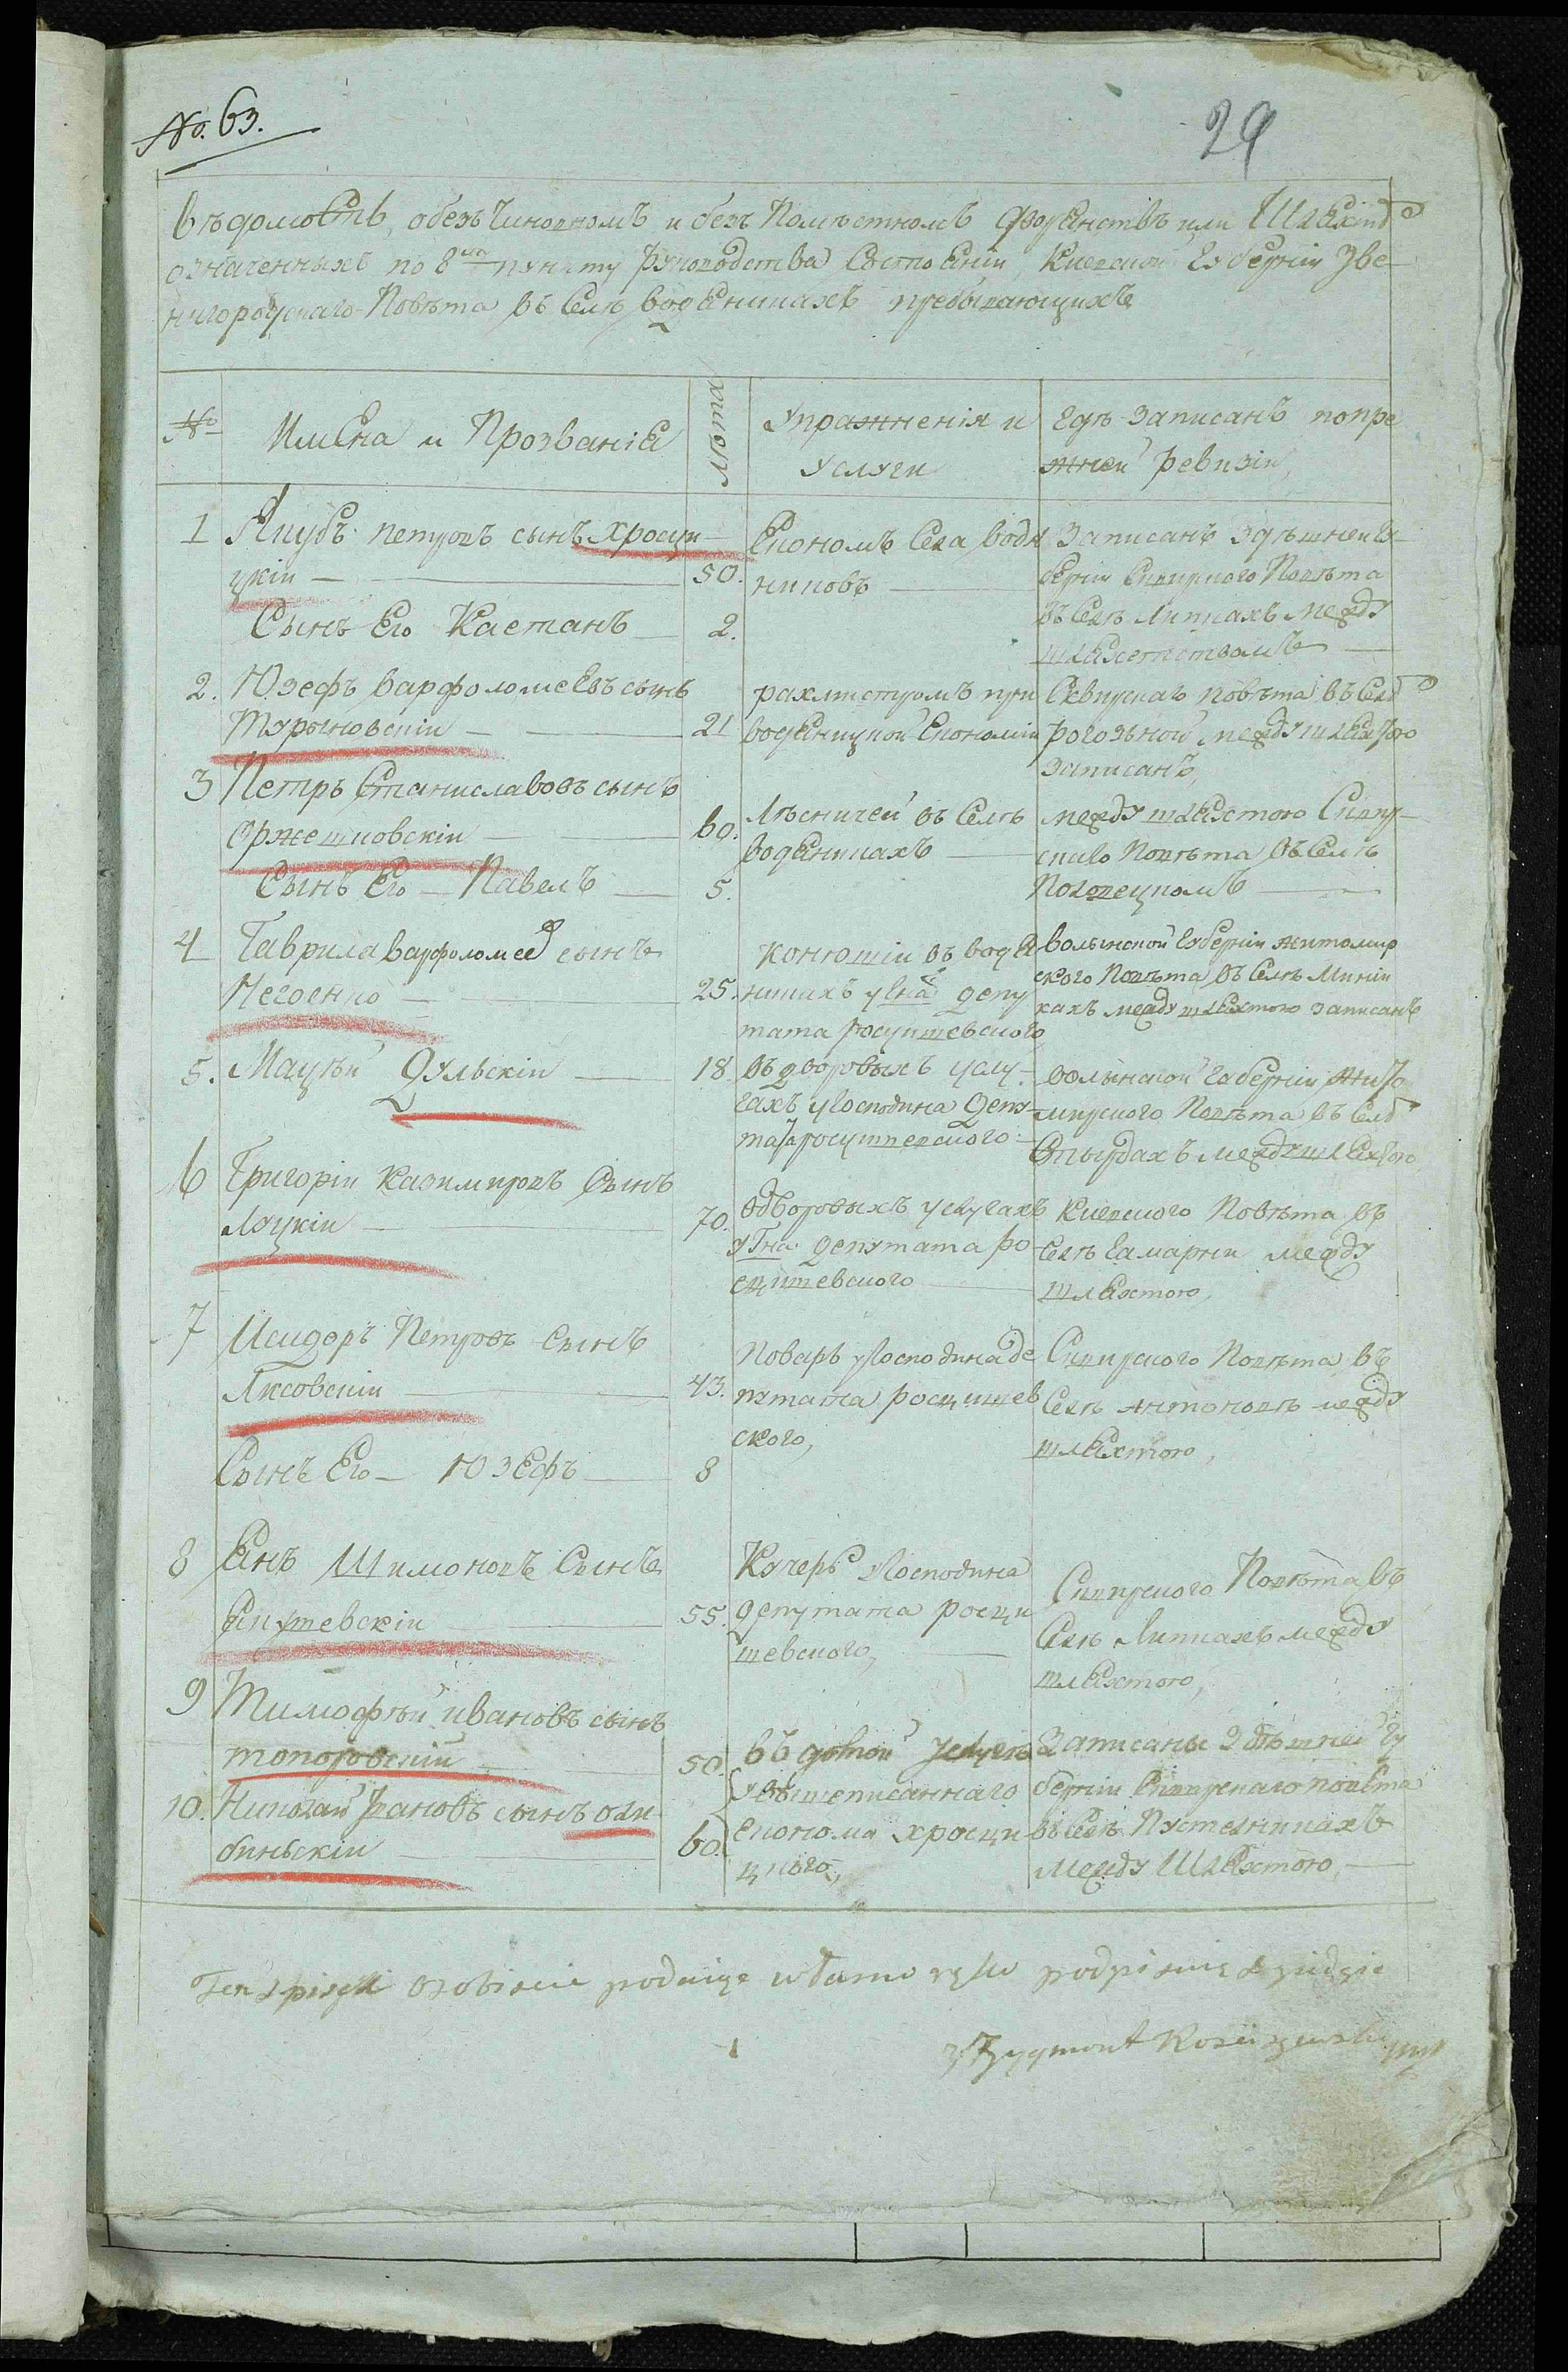 No. 63.
29
Вѣдомость, обезъ Чиновномъ и безъ Помѣстномъ Дворенствѣ или Шляхтѣ
означенныхъ по 8му пункту руководства Состоянiи, Киевской Губернiи Зве-
нигородскаго Повѣта въ Селѣ Воденикахъ пребывающихъ
№
Имена и Прозванiе
Лѣта
Упражненiя и
услуги
Гдѣ записанъ попре
жней ревизiи,
1 Якубъ Петровъ сынъ Хросци-
цкiи — 50.
Економъ Села Водя
никовъ
Записанъ здѣшней Гу-
бернiи Сквирского Повѣта
въ Селѣ Липкахъ между
шляхетствомъ
Сынъ Его Каетанъ 2.
2. Юзефъ Варфоломеевъ сынъ
Турыновскiи — 21
рахмистромъ при
воденицкой Економiи
Сквирскаго повѣта въ Селѣ
рогозьной между шляхтою
записанъ,
3 Петръ Станиславовъ сынъ
Оржешковскiи 60.
Лѣсничей въ Селѣ
воденикахъ
между шляхтою Сквир-
скаго Повѣта въ Селѣ
Пологецкомъ
Сынъ Его — Павелъ 5.
4 Гаврила Варфоломеевъ сынъ
Негоенко — 25.
конюшiи въ воде
никахъ у Гна депу
тата росцишевского
волынской Губернiи житомир
ского Повѣта въ Селѣ Минiи
кахъ между шляхтою записанъ
5. Мацѣй Дульскiи 18
въ дворовыхъ услу-
гахъ у Господина Депу-
тата росцишевского
волынской Губернiи Жито
мирского Повѣта въ Селѣ
между шляхтою
6 Григорiи Казимировъ Сынъ
Ляцкiи 70.
вдворовыхъ услугахъ
у Гна депутата ро
сцишевского
Киевского Повѣта въ
Селѣ Гамарни между
шляхтою,
7 Исидоръ Петровъ сынъ
Лясовскiи 43.
Поваръ у Господина де
путата росцишев
ского,
Сквирского Повѣта, въ
Селѣ Антоновѣ между
шляхтою,
Сынъ Его — Юзефъ 8
8 Янъ Шимоновъ Сынъ
Янушевскiи 55.
Кучеръ у Господина
депутата росци
шевского,
Сквирского Повѣта въ
Селѣ Липкахъ между
шляхтою,
9 Тимофѣй ивановъ сынъ
топоровскiй 50.
10. Николай Ивановъ сынъ оли
бинскiи 60.
въ дѣной услугѣ
у вышеписаннаго
економа хросци
цкого,
Записаны здѣшней Гу
бернiи Сквирскаго повѣта
въ Селѣ Пустелникахъ
между Шляхтою,
Ten spisek osobiscie podaiąc własną ręką podpisuię
Zygmont Rosciszewski